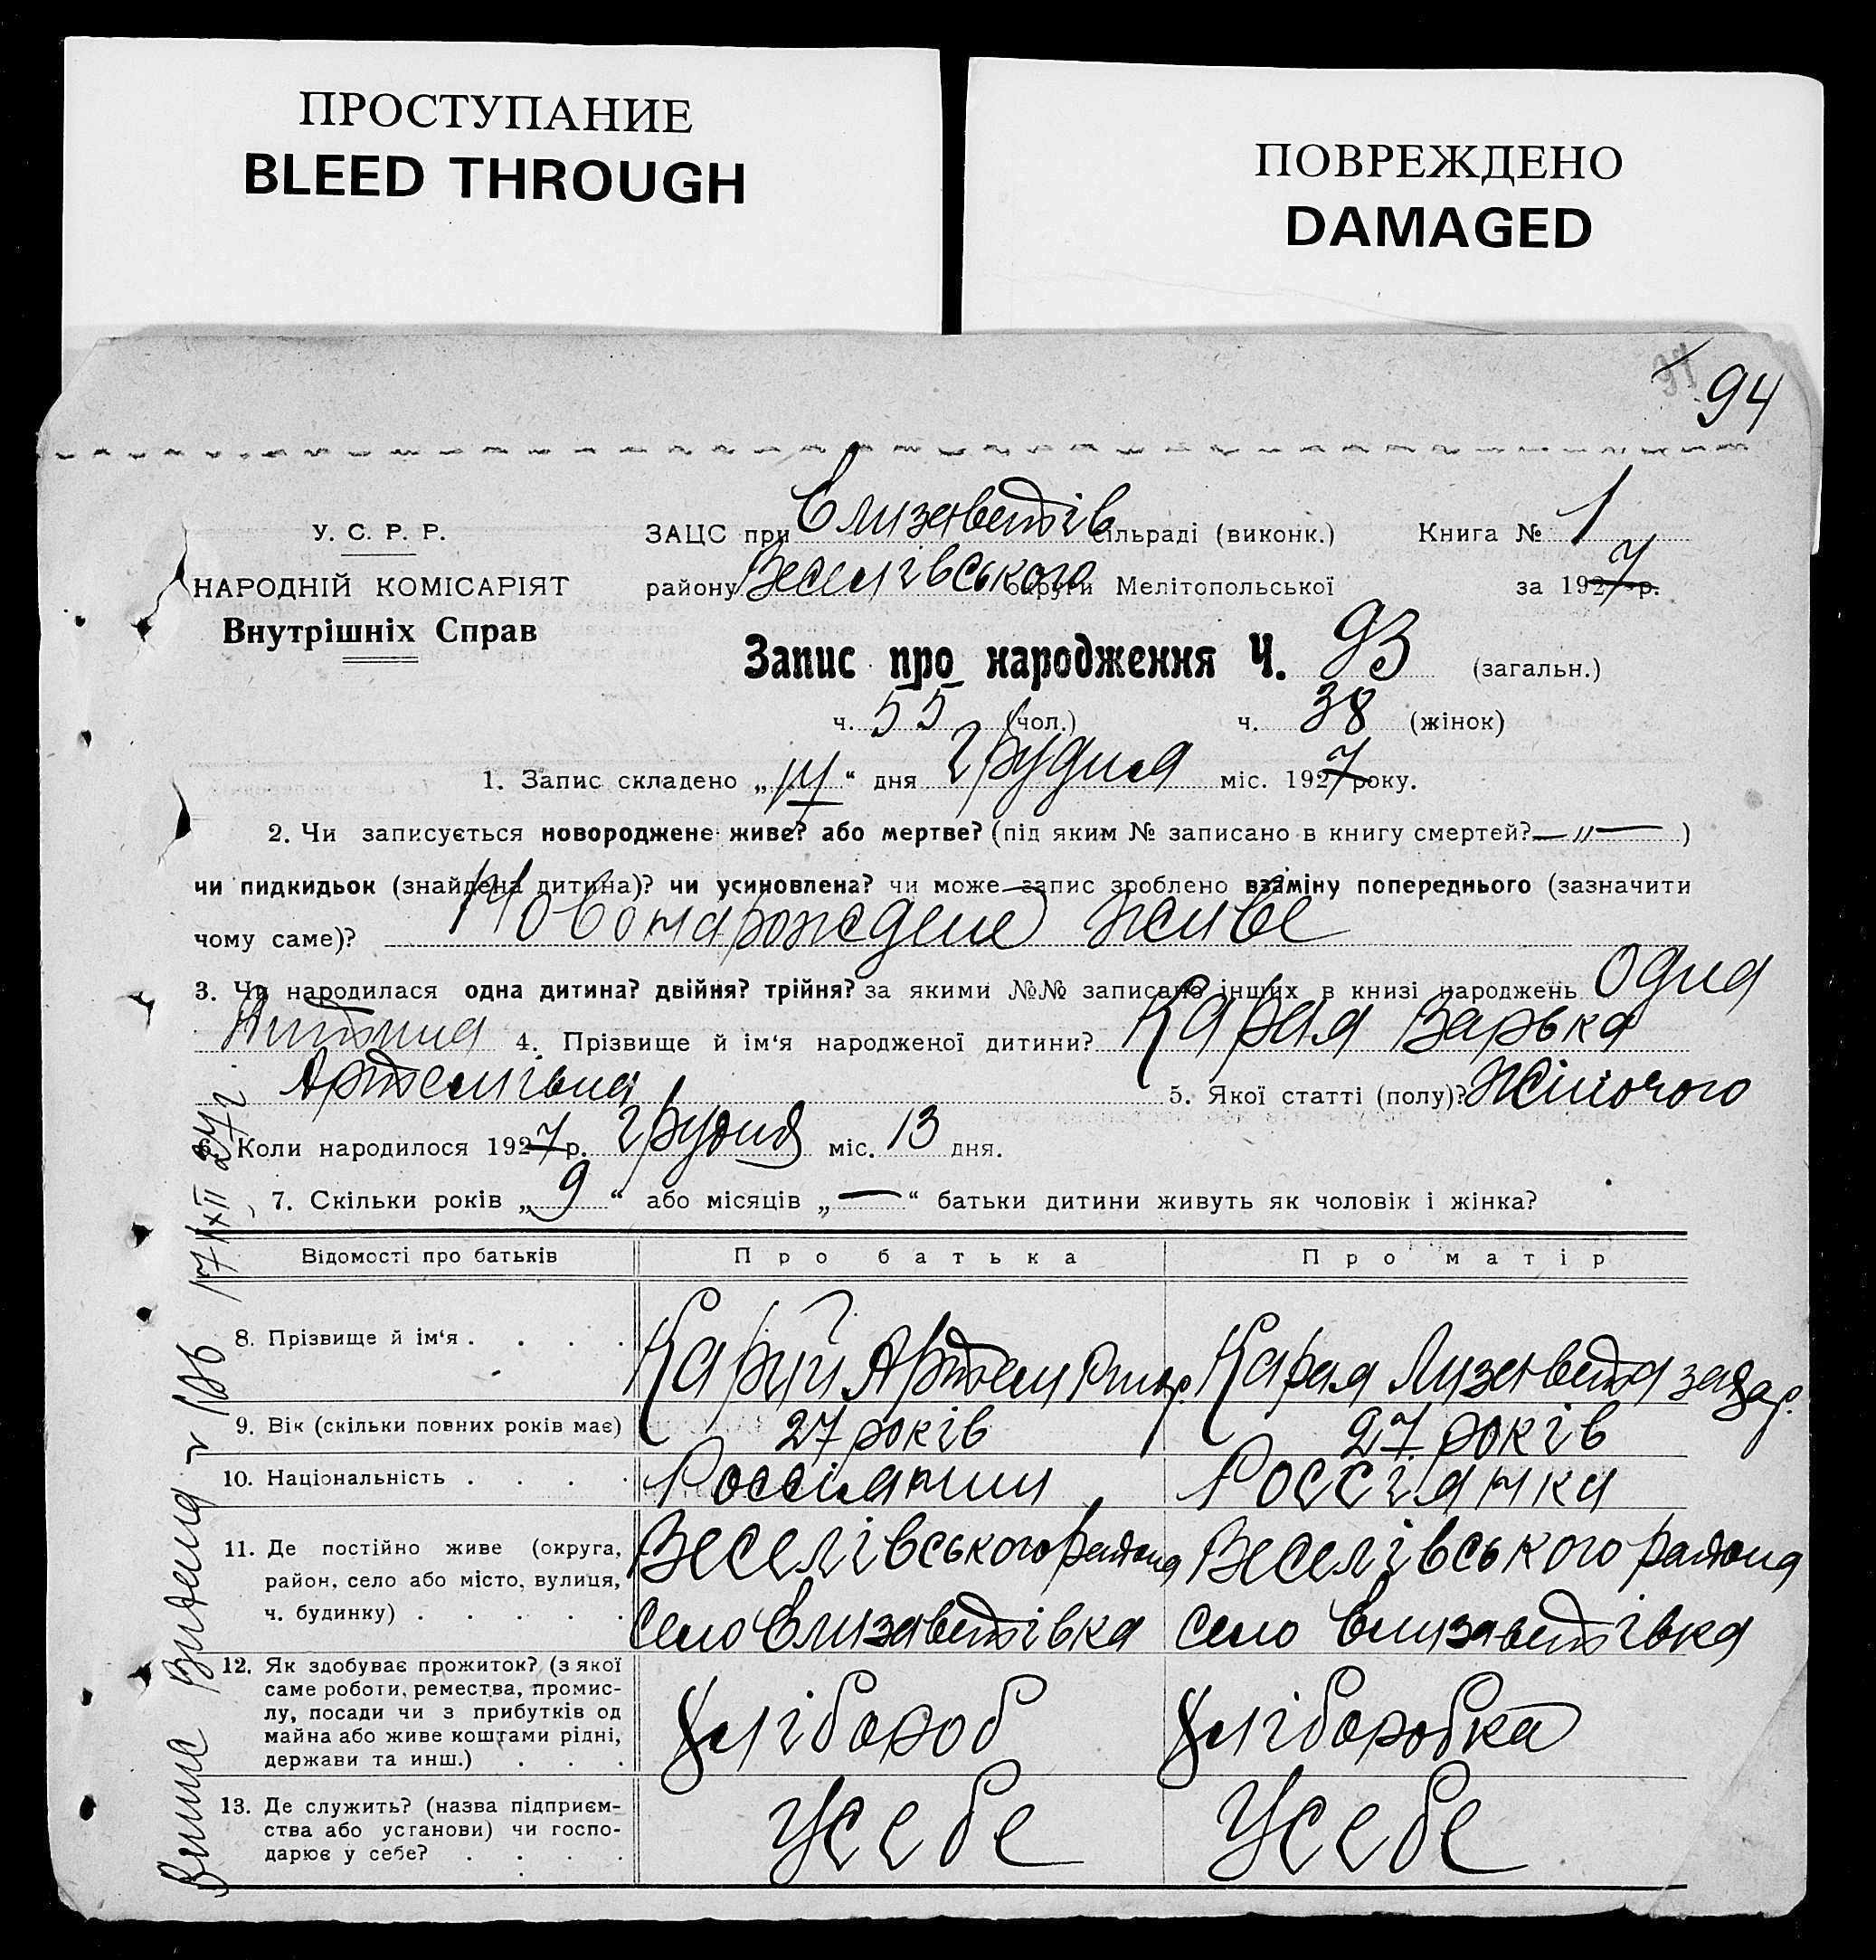 ПРОСТУПАНИЕ
BLEED THROUGH
ПОВРЕЖДЕНО
DAMAGED
94
У. С. Р. Р.
НАРОДНІЙ КОМІСАРІЯТ
Внутрішніх Справ
ЗАЦС при Єлизаветів сільраді (виконк.) Книга № 1
району Веселівського округи Мелітопольської за 1927 р.
Запис про народження Ч. 93 (загальн.)
ч. 55 (чол.) ч. 38 (жінок)
1. Запис складено „17“ дня Грудня міс. 1927 року.
2. Чи записується новороджене живе? або мертве? (під яким № записано в книгу смертей? — „ — )
чи пидкидьок (знайдена дитина)? чи усиновлена? чи може запис зроблено взаміну попереднього (зазначити
чому саме)? Новонарождене живе
3. Чи народилася одна дитина? двійня? трійня? за якими №№ записано інших в книзі народжень Одна
дитина 4. Прізвище й ім‘я народженої дитини? Карая Варька
Артемівна 5. Якої статті (полу)? Жіночого
6. Коли народилося 1927 р. Грудня міс. 13 дня.
7. Скільки років „ 9 “ або місяців „ — “ батьки дитини живуть як чоловік і жінка?
Відомості про батьків Про батька Про матір
8. Прізвище й ім‘я . . . . Карий Артем Карая Лизавета Захар.
9. Вік (скільки повних років має) 27 років 27 років
10. Національність . . . . Россіянин Россіянка
11. Де постійно живе (округа, Веселівського района Веселівського района
район, село або місто, вулиця,
ч. будинку) . . . . . село Єлизаветівка село Єлизаветівка
12. Як здобуває прожиток? (з якої
саме роботи, ремества, промис-
лу, посади чи з прибутків од Хлібороб Хліборобка
майна або живе коштами рідні,
держави та инш.) . . .
13. Де служить? (назва підприєм-
ства або установи) чи госпо- У себе У себе
дарює у себе? . . . .
Випис видена № 186 17/XII 27 г.